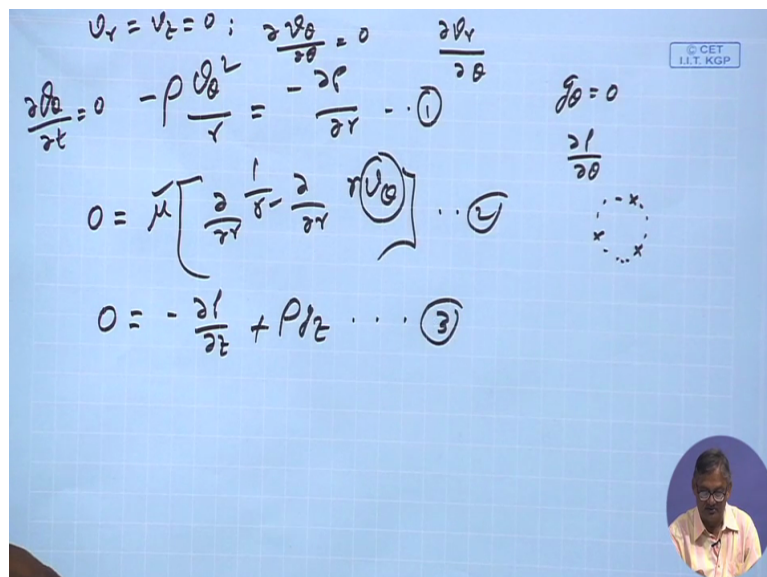 v_r = v_z = 0 ; ∂v_θ/∂θ = 0 ∂v_r/∂θ
© CET
I.I.T. KGP
∂v_θ/∂t = 0 -ρ v_θ²/r = -∂p/∂r -- ①
g_θ = 0
∂p/∂θ
0 = μ[∂/∂r 1/r ∂/∂r r v_θ] .. ②
0 = -∂p/∂z + ρg_z .... ③